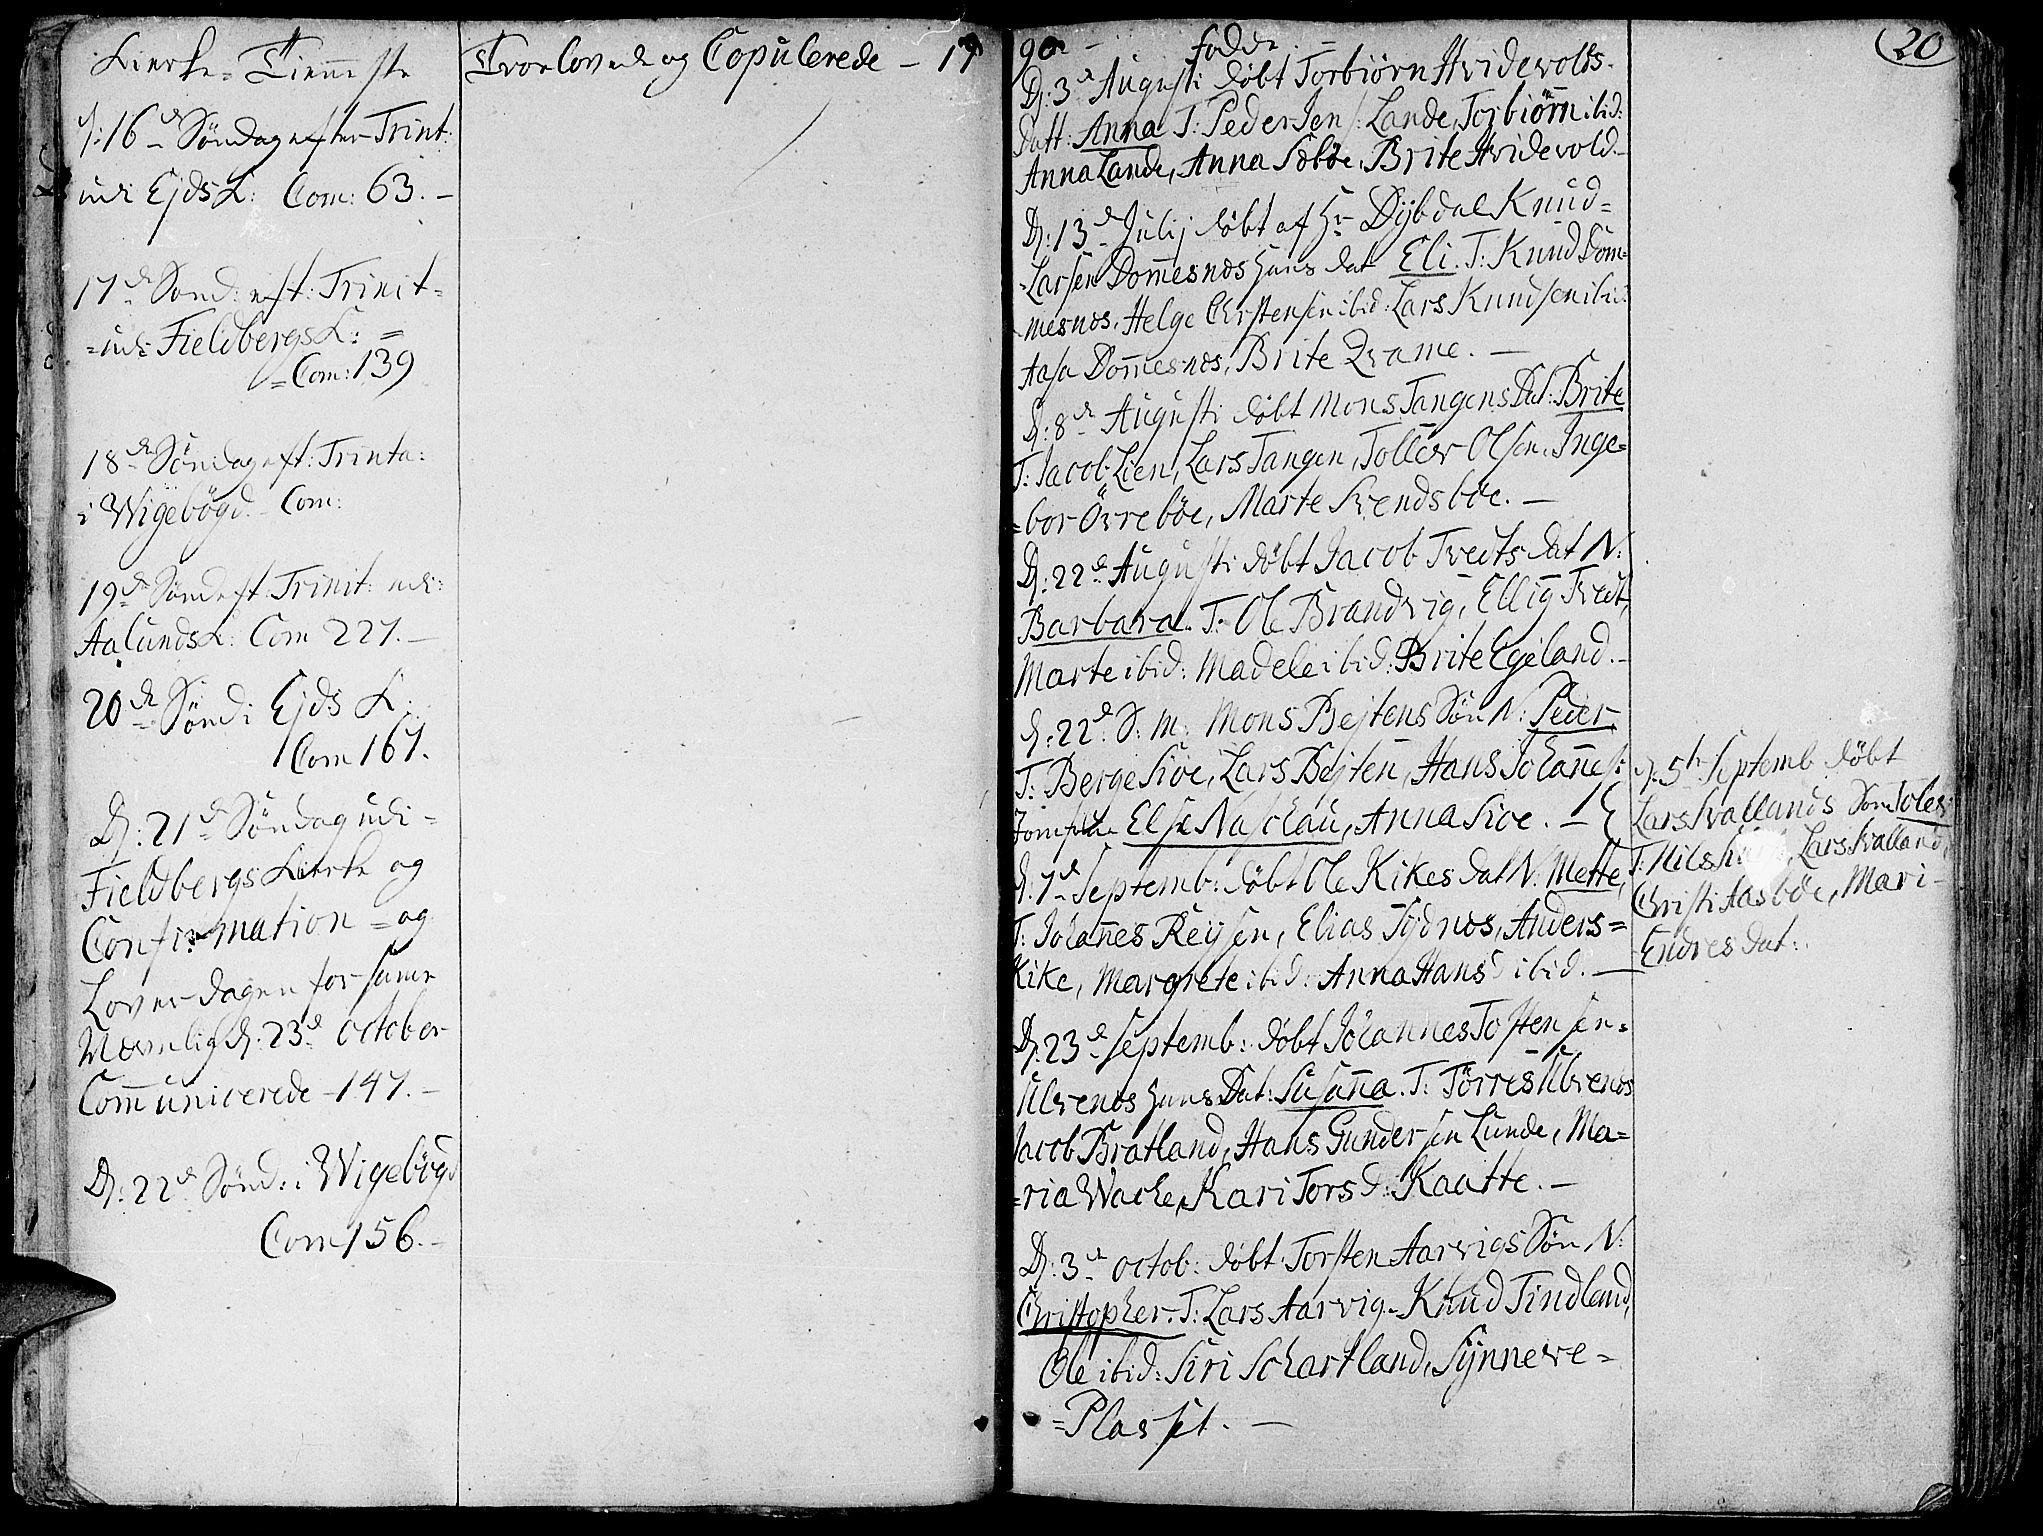 Kierke-Tienneste
d: 16de Søndag efter Trint:
udi EjdsK: Com: 63. -
17de Sond: eft: Trinit-
=udi FieldbergsK: =
=Com: 139
18de Søndag eft: Trinta:
i Wigebögd - Com:
19de Sønd eft Trinit: udi:
AalundsK: Com 227. -
20de Sønd: Ejds K:
Com 167.
D: 21de Søndag udi -
Fieldbergs Kierke og
Confirmation = og
Løverdagen for samme
Nemlig d: 23de october
Communicerede - 147. -
D: 22de Sønd: i Wigebögd
Com 156. -
Trolovede og Copulerede - 17
90 - fødde. -
20
D: 3de Augusti døbt Torbiørn Hvidevolds-
Datt: Anna T: Peder Jens: Lande, Torbiørn ibid:
Anna Lande, Anna Sæbøe, Brite Hvidevold. -
D: 13de Julij døbt af Hr Dybdal Knud=
-Larsen Dommesnæs hans Dat Eli. T: Knud Dom-
-mesnæs, Helge Christensen ibid: Lars Knudsen ibid:
Aasa Dommesnæs, Brite Qvame. -
D: 8de Augusti døbt Mons Tangens Dat: Brite
T: Jacob Lien, Lars Tangen, Tollev Olsen, Inge=
=bor Övrebøe, Marte Svendsbøe. -
D: 22de Augusti døbt Jacob Tvedts Dat N:
Barbara. T: Ole Brandvig, Ellig Tvedt,
Marte ibid: Madele ibid: Brite Egeland. -
d: 22de S: M: Mons Bejtens Søn N: Peder
T: Berge Sioe, Lars Bejten, Hans Johannes:
Jomfrue Else Naschau, Anna Sioe. -
d. 7de Septemb: døbt Ole Kikes Dat N: Mette,
T: Johannes Reysen, Elias Tydnæs, Anders=
Kike, Margrete ibid: Anna Hansd ibid. -
D: 23de Septemb: døbt Johannes Tostensen-
Ulvenæs hans Dat: Susanna. T: Törres Ulvenæs
Jacob Bratland, Hans Gundersen Lunde, Ma=
=ria Wache, Kari Torsd: Kaatte. -
D: 3de octob: døbt Torsten Aarvigs Søn N:
Christopher. T: Lars Aarvig - Knud Tindland,
Ole ibid: Siri Schartland, Synneve=
=Plasset. -
d. 5te Septemb døbt
Lars Svallands Søn Tolev
T: Nils Lars Svalland,
Christi Aasbøe, Mari -
Endresdat:.